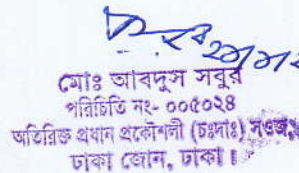 মোঃ আবদুস সবুর
পরিচিতি নং- ০০৫০২৪
অতিরিক্ত প্রধান প্রকৌশলী (চঃদাঃ) সওজ,
ঢাকা জোন, ঢাকা।